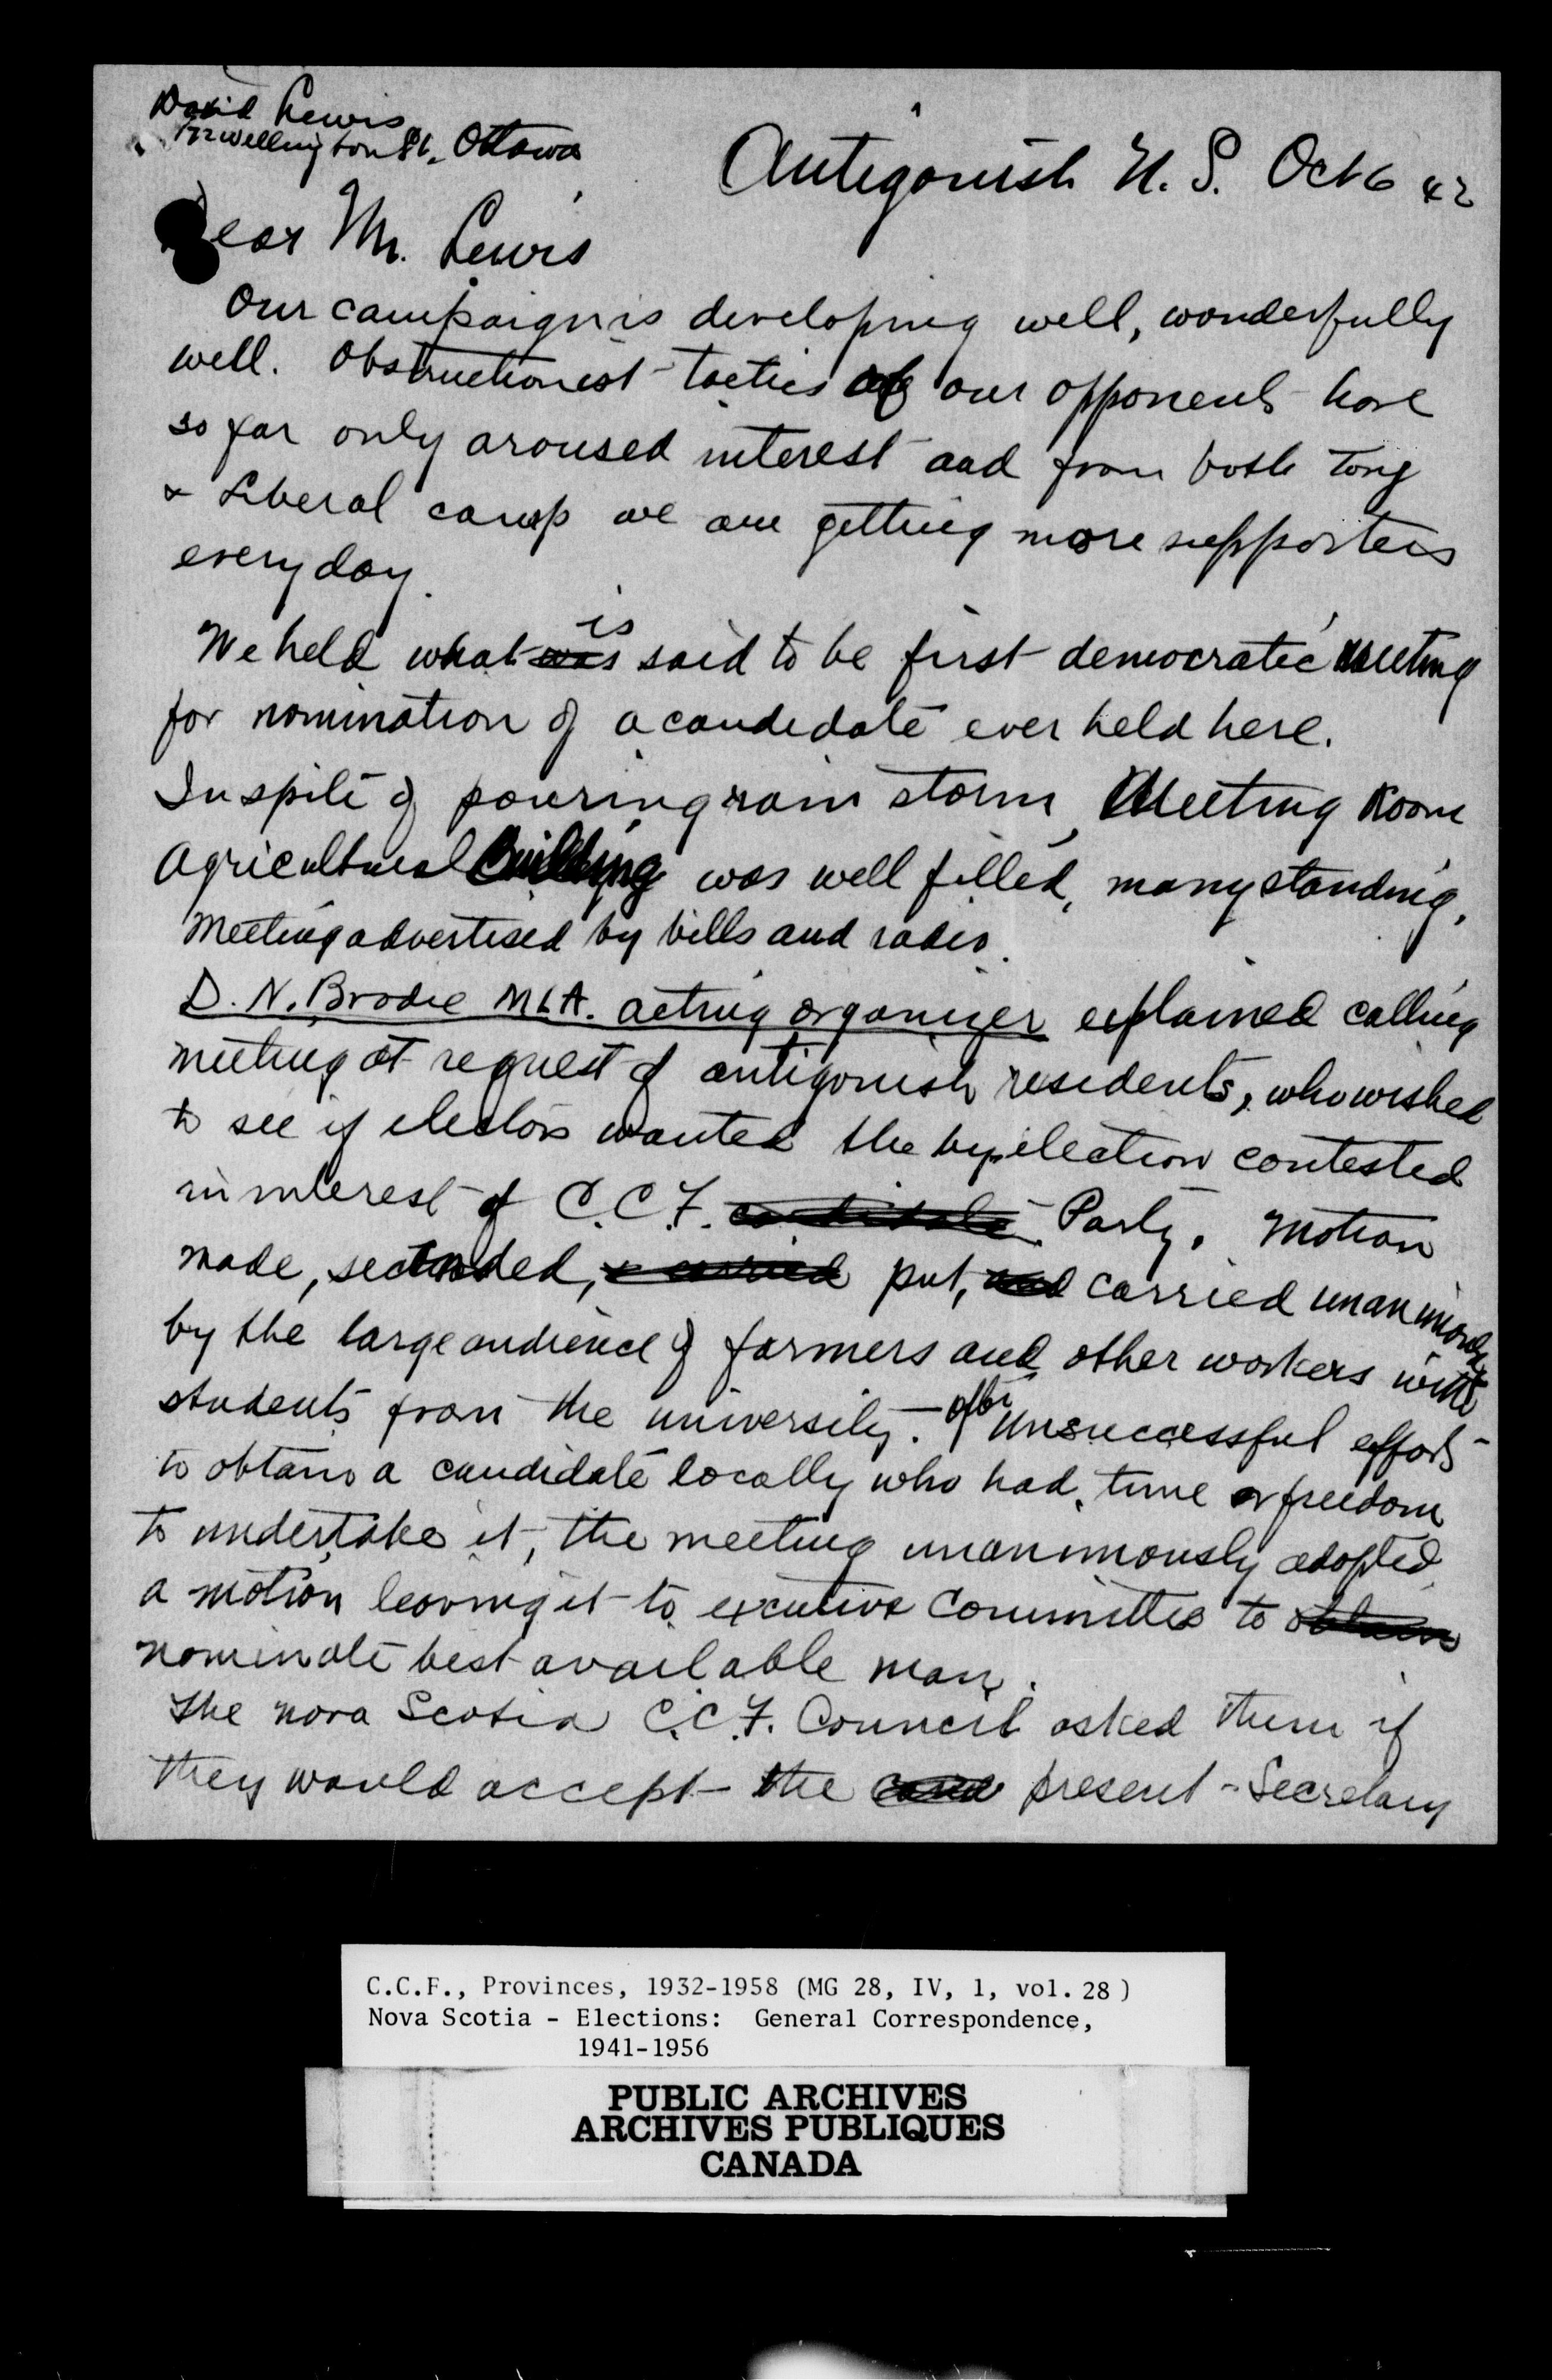 David Lewis
Wellington St., Ottawa
Antigonish N. S. Oct 6 42
Dear Mr. Lewis
Our campaign is developing well, wonderfully
well. Obstructionist tactics of our opponents have
so far only aroused interest and from both Tory
& Liberal camp we are getting more supporters
every day.
We held what was is said to be first democratic meeting
for nomination of a candidate ever held here.
In spite of pouring rain storm, Meeting Room
Agricultural Building was well filled, many standing,
Meeting advertised by bills and radio.
D. N. Brodie MLA. acting organizer explained calling
meeting at request of antigonish residents, who wished
to see if electors wanted the by-election contested
in interest of C.C.F. candidate Party. Motion
made, seconded, & carried put, and carried unanimously
by the large audience of farmers and other workers with
students from the university. After unsuccessful efforts
to obtain a candidate locally who had time or freedom
to undertake it, the meeting unanimously adopted
a motion leaving it to excutive Committee to obtain
nominate best available man.
The Nova Scotia C.C.F. Council asked them if
they would accept the cand present Secretary
C.C.F., Provinces, 1932-1958 (MG 28, IV, 1, vol. 28 )
Nova Scotia - Elections: General Correspondence,
1941-1956
PUBLIC ARCHIVES
ARCHIVES PUBLIQUES
CANADA